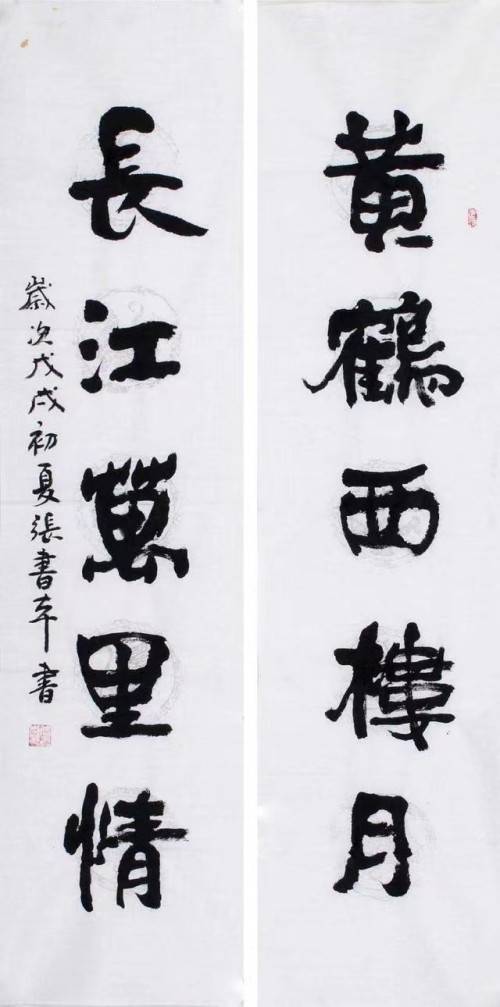 黃鶴西樓月
長江萬里情
歲次戊戌初夏張書年書